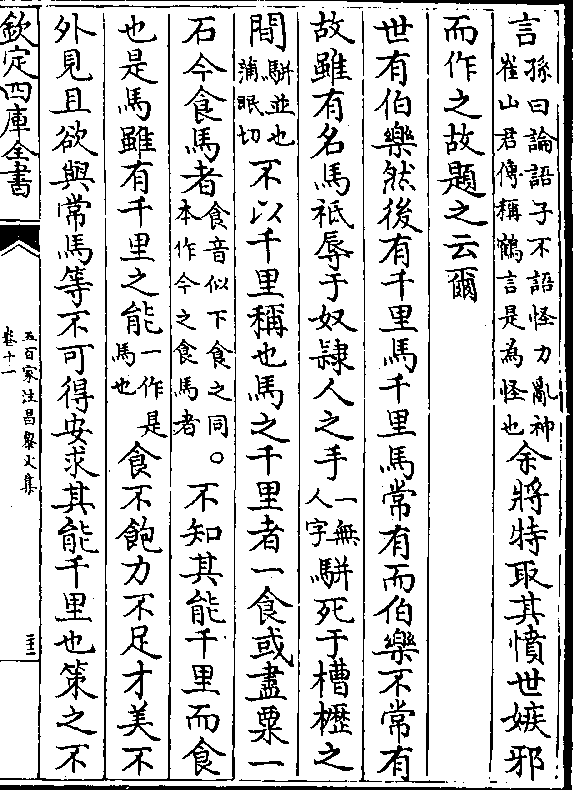 言孫曰論語子不語怪力亂神崔山君傳稱鶴言是為怪也余將特取其憤世嫉邪
而作之故題之云爾
世有伯樂然後有千里馬千里馬常有而伯樂不常有
故雖有名馬祗辱于奴隸人之手一無人字駢死于槽櫪之
間駢並也蒲眠切不以千里稱也馬之千里者一食或盡粟一
石今食馬者食音似下食之同。本作今之食馬者不知其能千里而食
也是馬雖有千里之能一作是馬也食不飽力不足才美不
外見且欲與常馬等不可得安求其能千里也策之不
欽定四庫全書
五百家注昌黎文集
卷十一
二十二